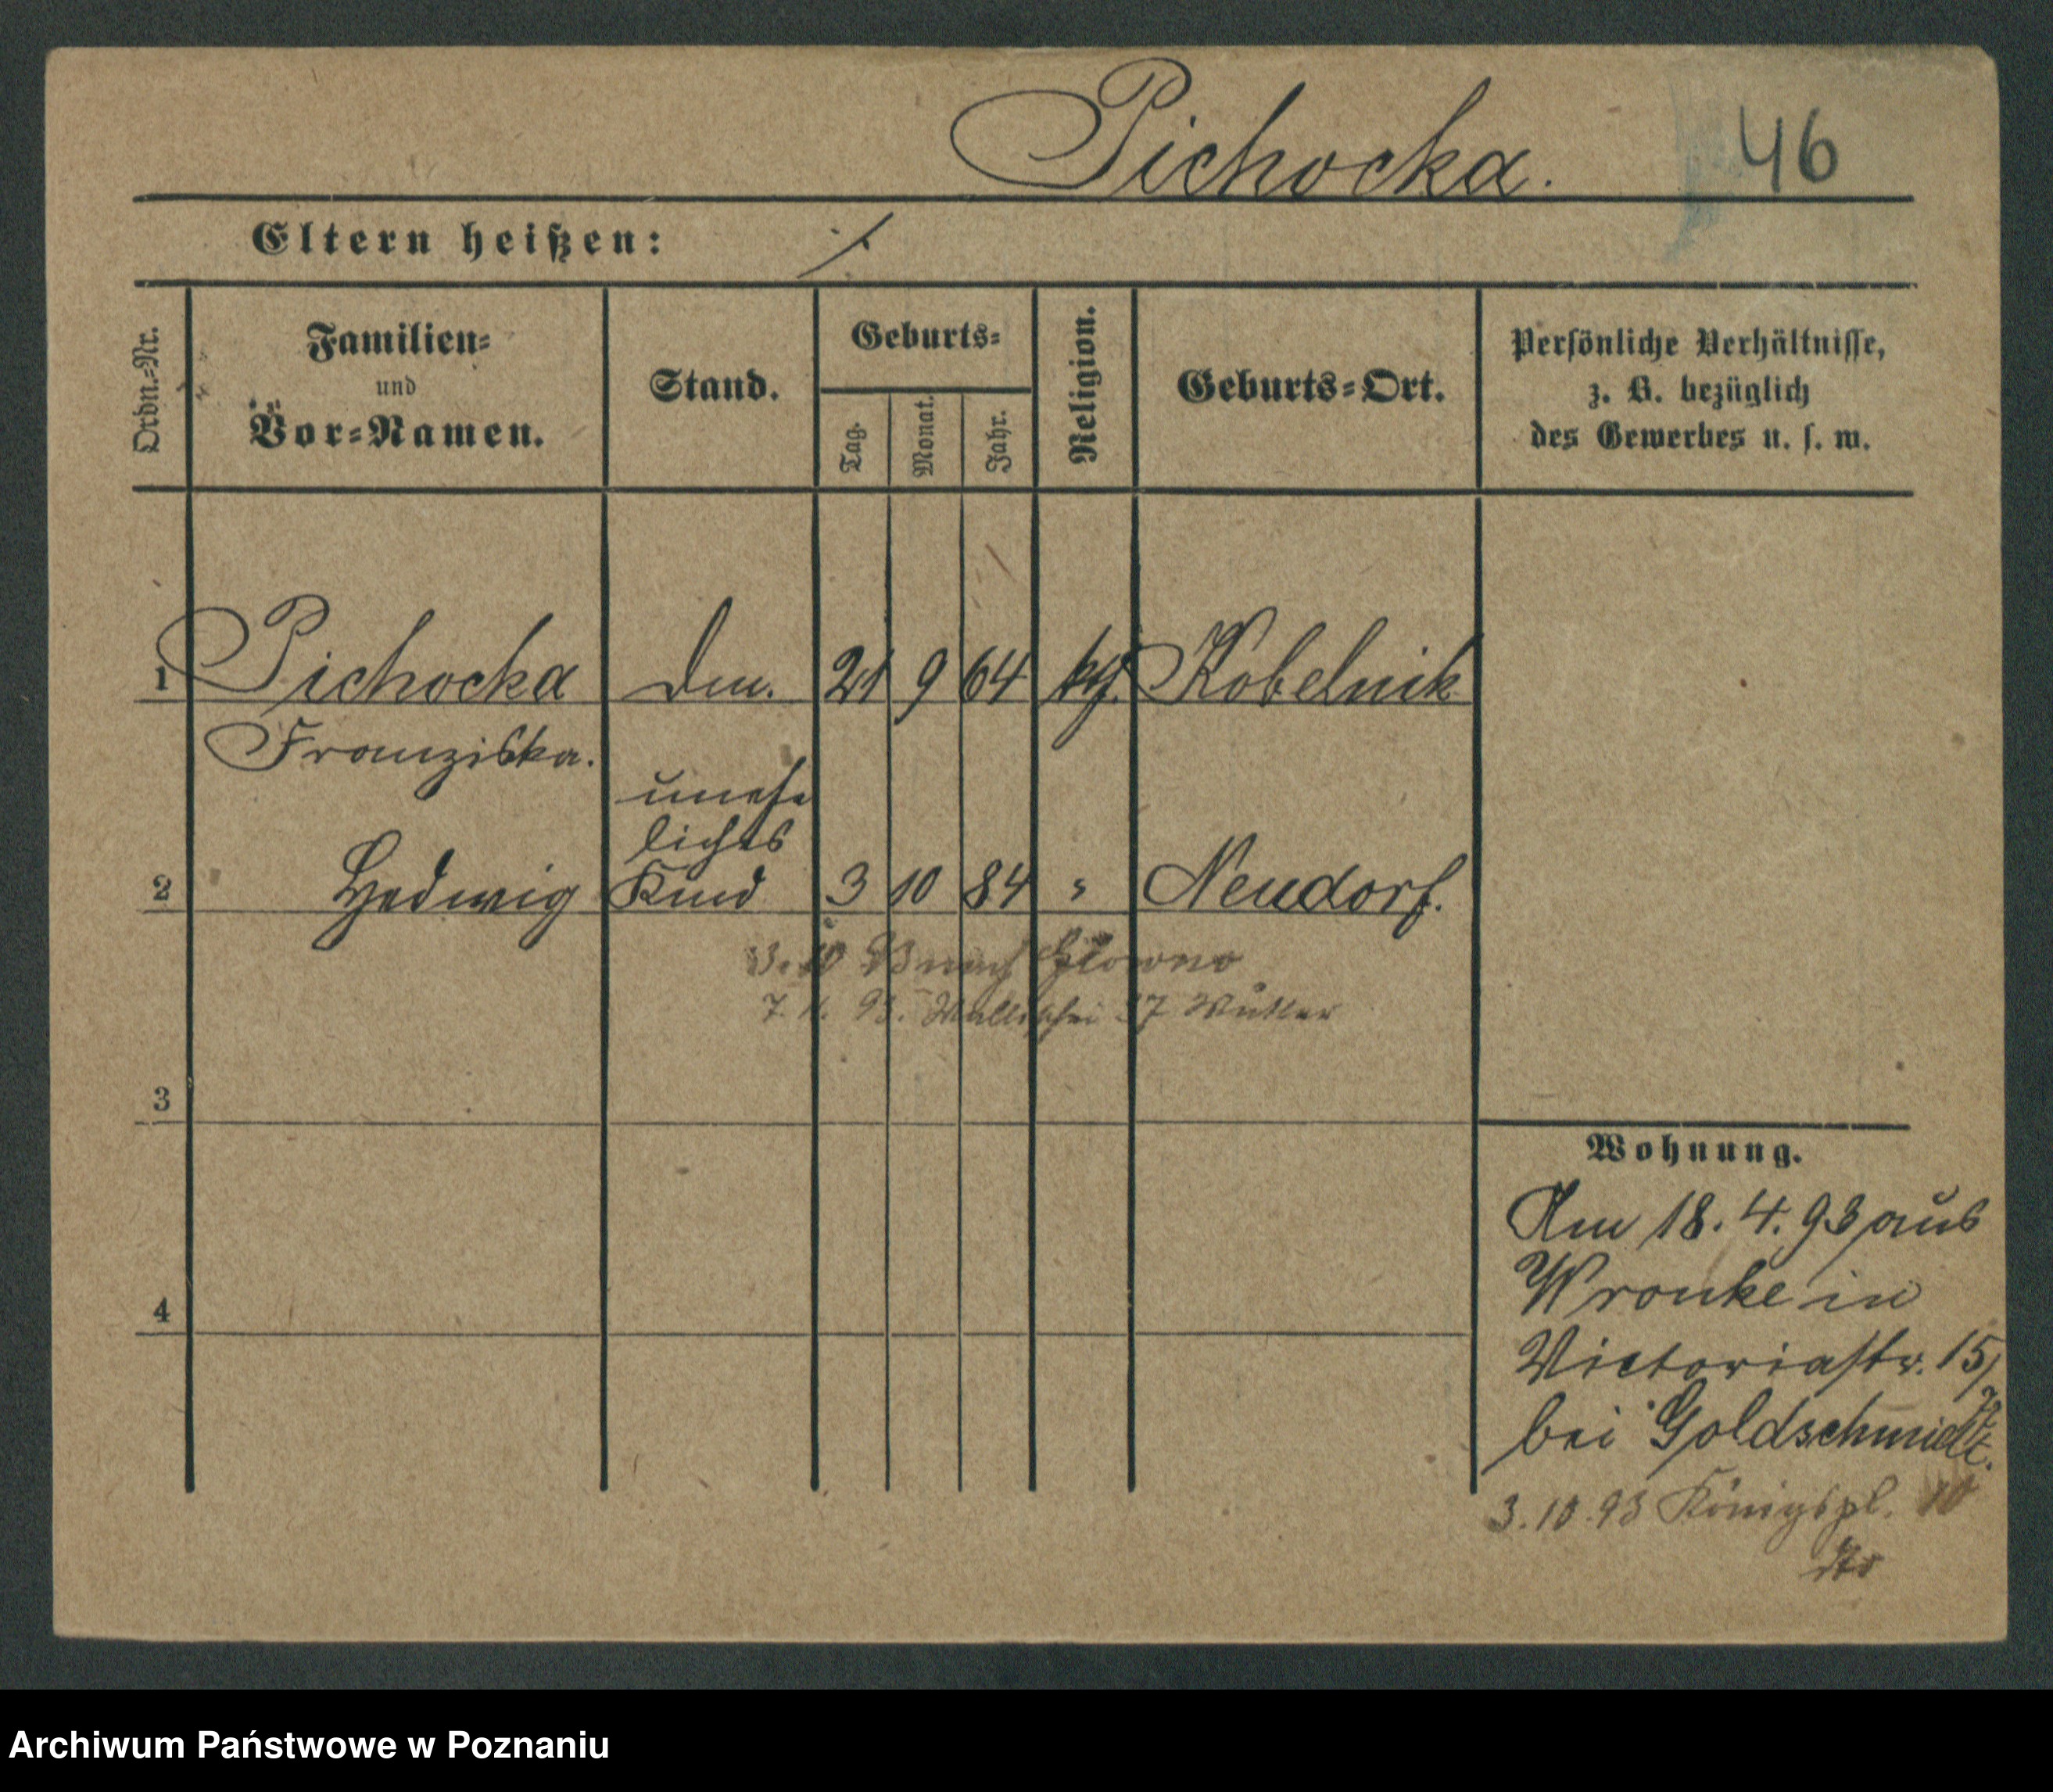 Pichocka.
46
Eltern heißen: ./.
Ordn.-Nr.
Familien-
und
Vor-Namen.
Stand.
Geburts-
Tag.
Monat.
Jahr.
Religion.
Geburts-Ort.
Persönliche Verhältnisse,
z. B. bezüglich
des Gewerbes u. s. w.
1 Pichocka 21 9 64 Kobelnik
Franziska.
unehe
liches
2 Hedwig Kind 3 10 84 " Neudorf.
3. 10 nach Glowno
7. 93. Wallischei 37 Mutter
3
4
Wohnung.
Am 18. 4. 93 aus
Wronke in
Victoriastr. 15,
bei Goldschmidt.
3. 10. 93 Königspl. 10
Archiwum Państwowe w Poznaniu